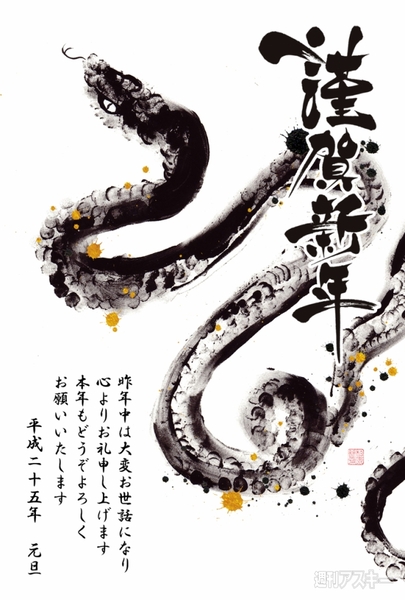 謹賀新年
昨年中は大変お世話になり
心よりお礼申し上げます
本年もどうぞよろしく
お願いいたします
平成二十五年 元旦
週刊アスキー